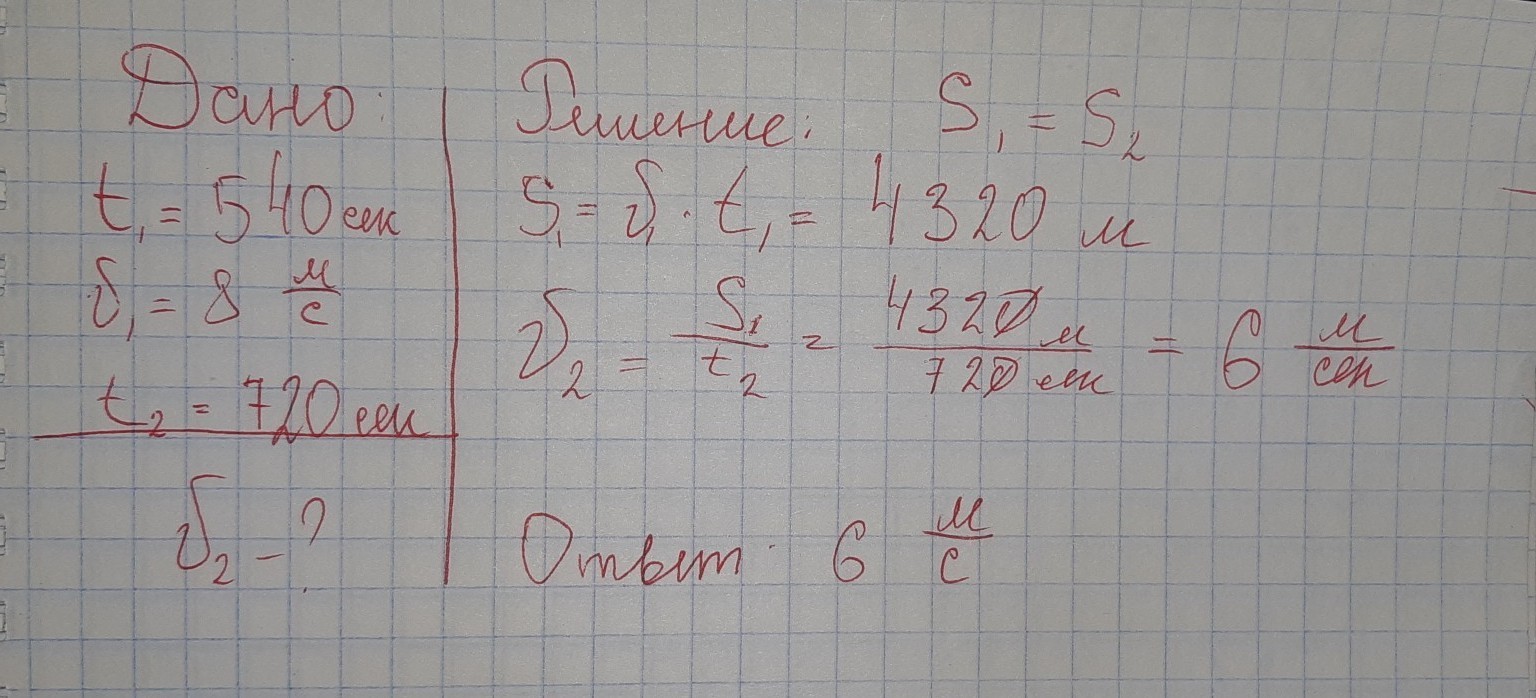 Дано:
t₁ = 540 сек
υ₁ = 8 м/с
t₂ = 720 сек
υ₂ - ?
Решение: S₁ = S₂
S₁ = υ₁ · t₁ = 4320 м
υ₂ = S₁/t₂ = 4320 м/720 сек = 6 м/сек
Ответ: 6 м/с